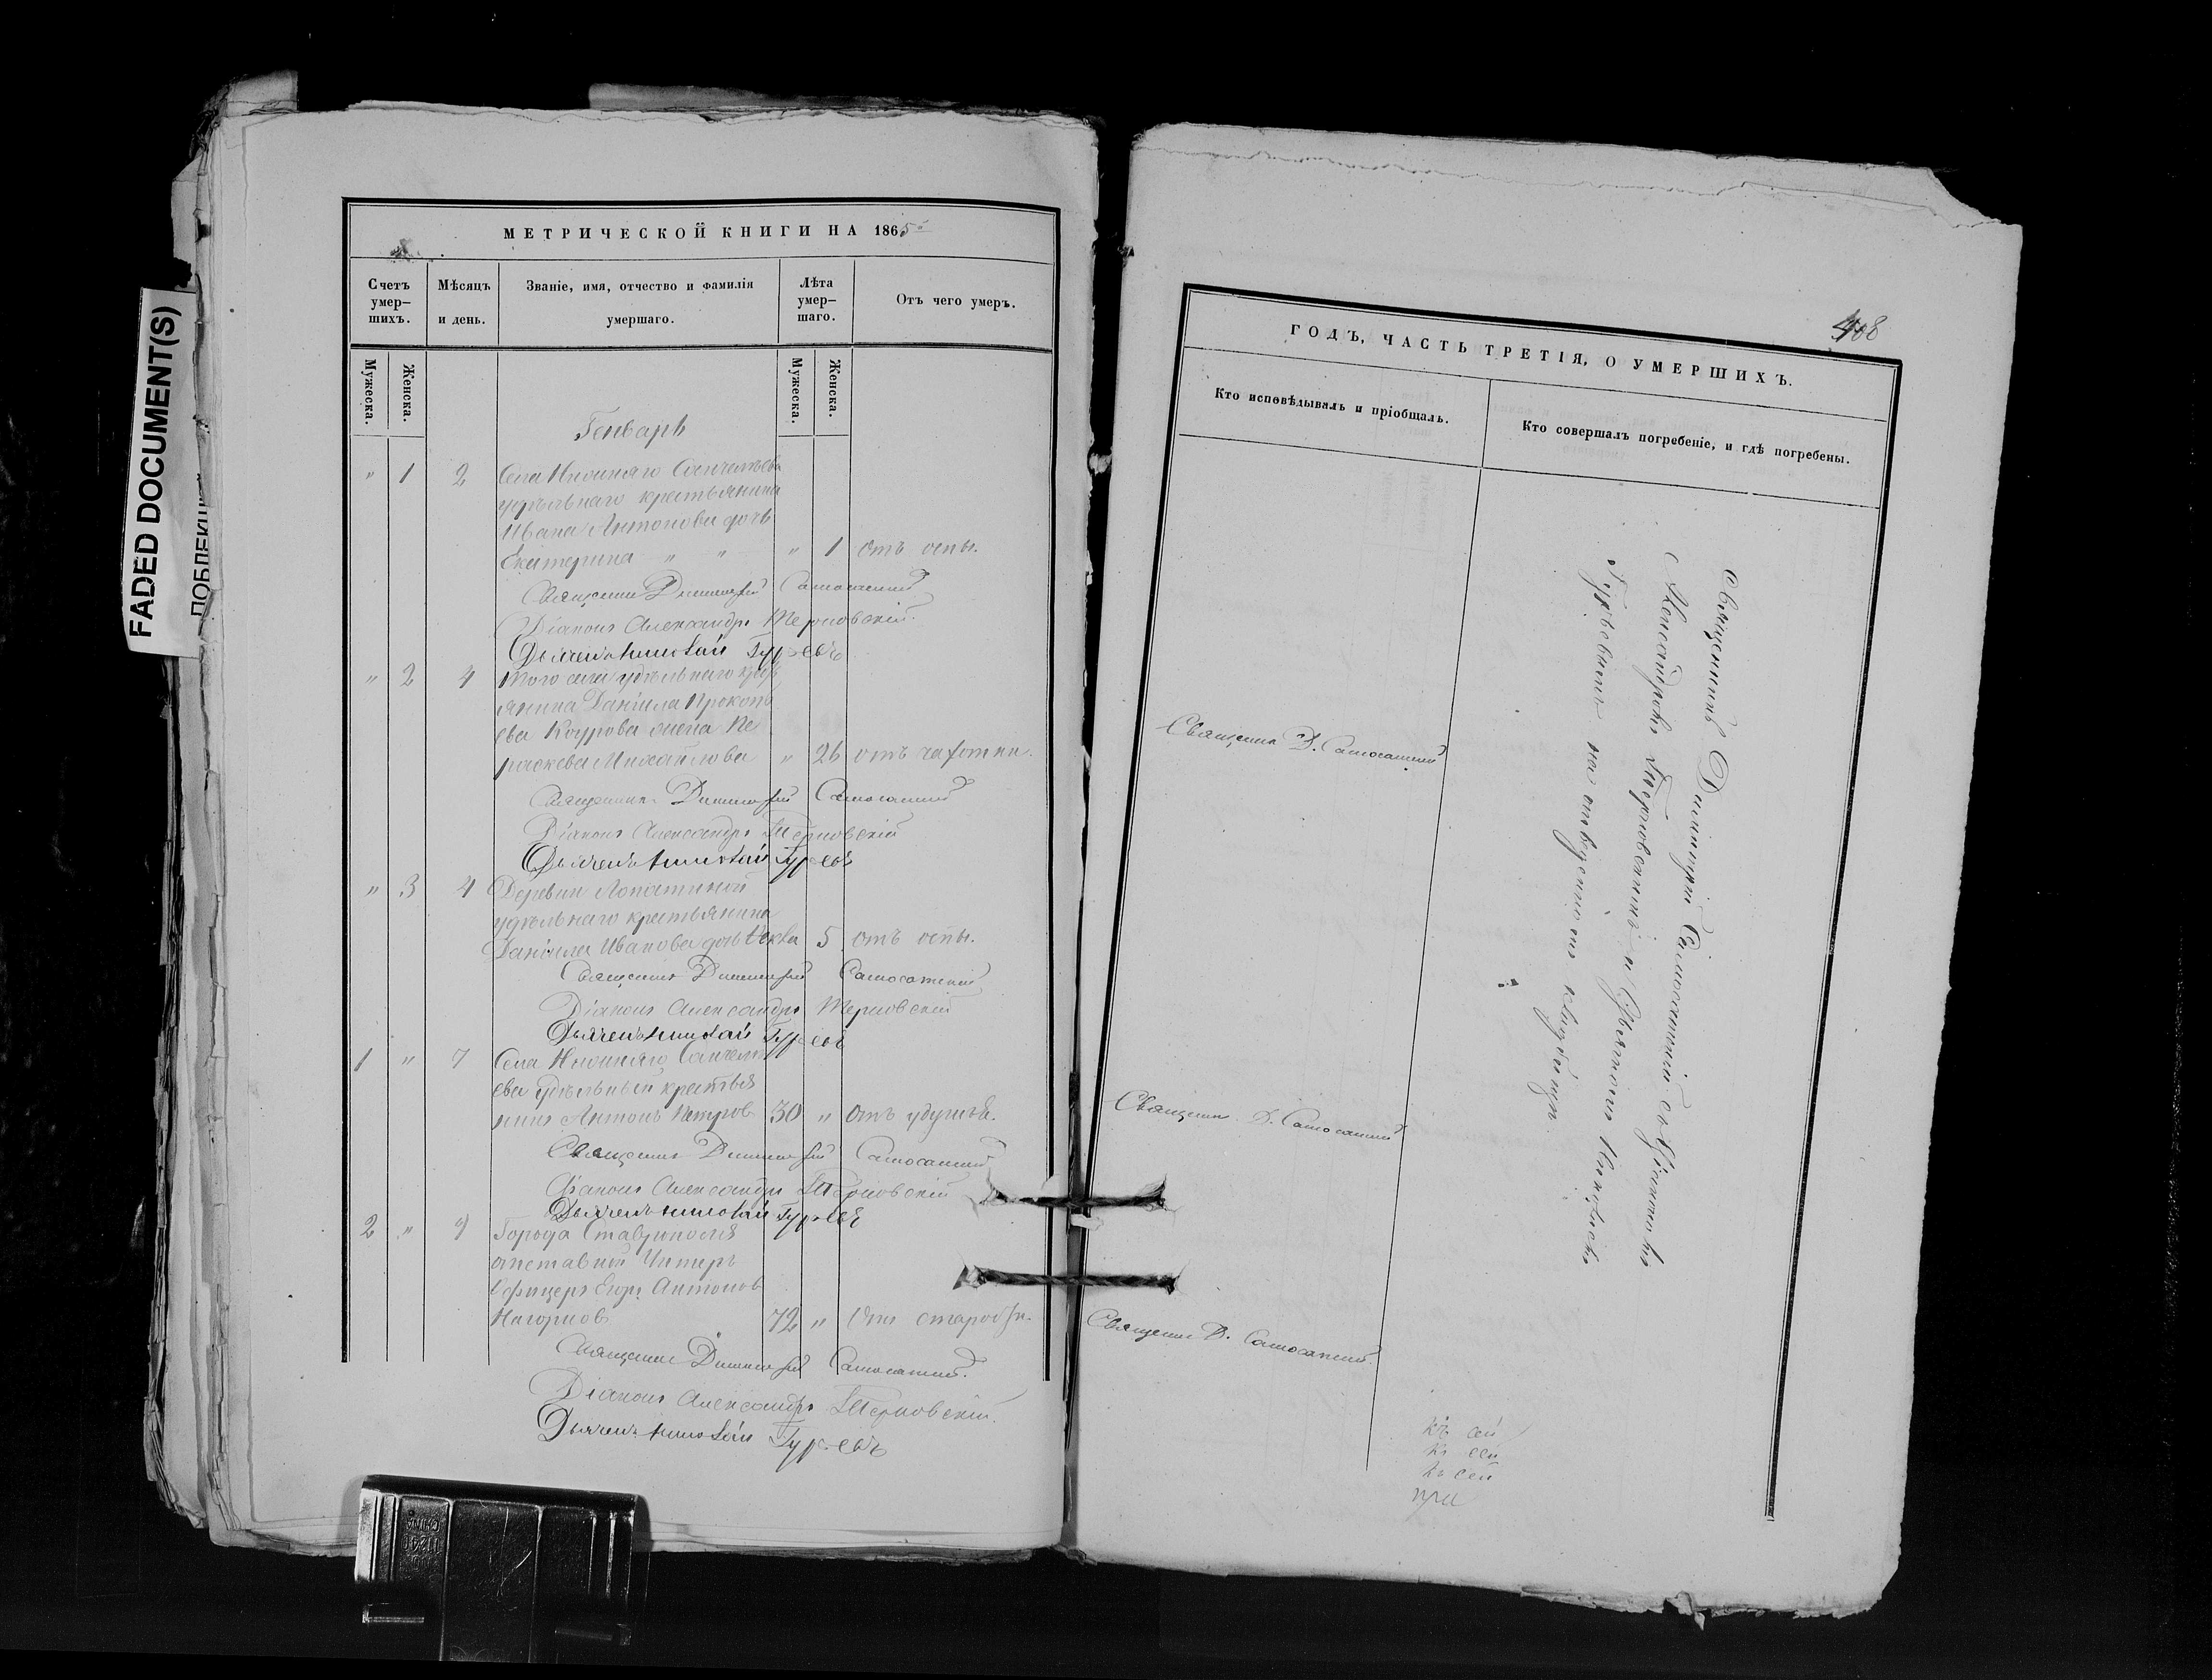 FADED DOCUMENT(S)
МЕТРИЧЕСКОЙ КНИГИ НА 1865
Счетъ умер-шихъ. Мѣсяцъ и день. Званіе, имя, отчество и фамилія умершаго. Лѣта умер-шаго. Отъ чего умеръ.
Мужеска. Женска. Мужеска. Женска.
Генварь
" 1 2 Села Нижняго Санчелѣева
удѣльнаго крестьянина
Ивана Антонова дочь
Екатерина " " " 1 отъ оспы.
Священникъ Димитрій Самосатскій
Діаконъ Александръ Терновскій.
Дьячекъ Николай Гурьевъ
" 2 4 Того села удѣльнаго крест
янина Даніила Прокопь
ева жена Па
раскева Михайлова " 26 отъ чахотки.
Священникъ Димитрій Самосатскій
Діаконъ Александръ Терновскій
Дьячекъ Николай Гурьевъ
" 3 4 Деревни Лопатиной
удѣльнаго крестьянина
Даніила Иванова дочь 5 отъ оспы.
Священникъ Димитрій Самосатскій
Діаконъ Александръ Терновскій
Дьячекъ Николай Гурьевъ
1 " 7 Села Нижняго Санчелѣ
ева удѣльный крестья
нинъ Антонъ Петров 30 " Отъ удушья.
Священникъ Димитрій Самосатскій
Діаконъ Александръ Терновскій
Дьячекъ Николай Гурьевъ
2 " 9 Города Ставрополя
отставной Унтеръ
Офицеръ Егоръ Антонов
Нагорнов 72 " Отъ старости.
Священникъ Димитрій Самосатскій.
Діаконъ Александръ Терновскій.
Дьячекъ Николай Гурьевъ
408
ГОДЪ, ЧАСТЬ ТРЕТІЯ, О УМЕРШИХЪ.
Кто исповѣдывалъ и пріобщалъ. Кто совершалъ погребеніе, и гдѣ погребены.
Священникъ Д. Самосатскій
Священникъ Д. Самосатскій
Священникъ Д. Самосатскій.
Священникъ Димитрій Самосатскій съ Діакономъ
Александромъ Терновскимъ и Дьячкомъ Николаемъ
Гурьевымъ на отведенномъ кладбищѣ.
къ сей
къ сей
къ сей
при